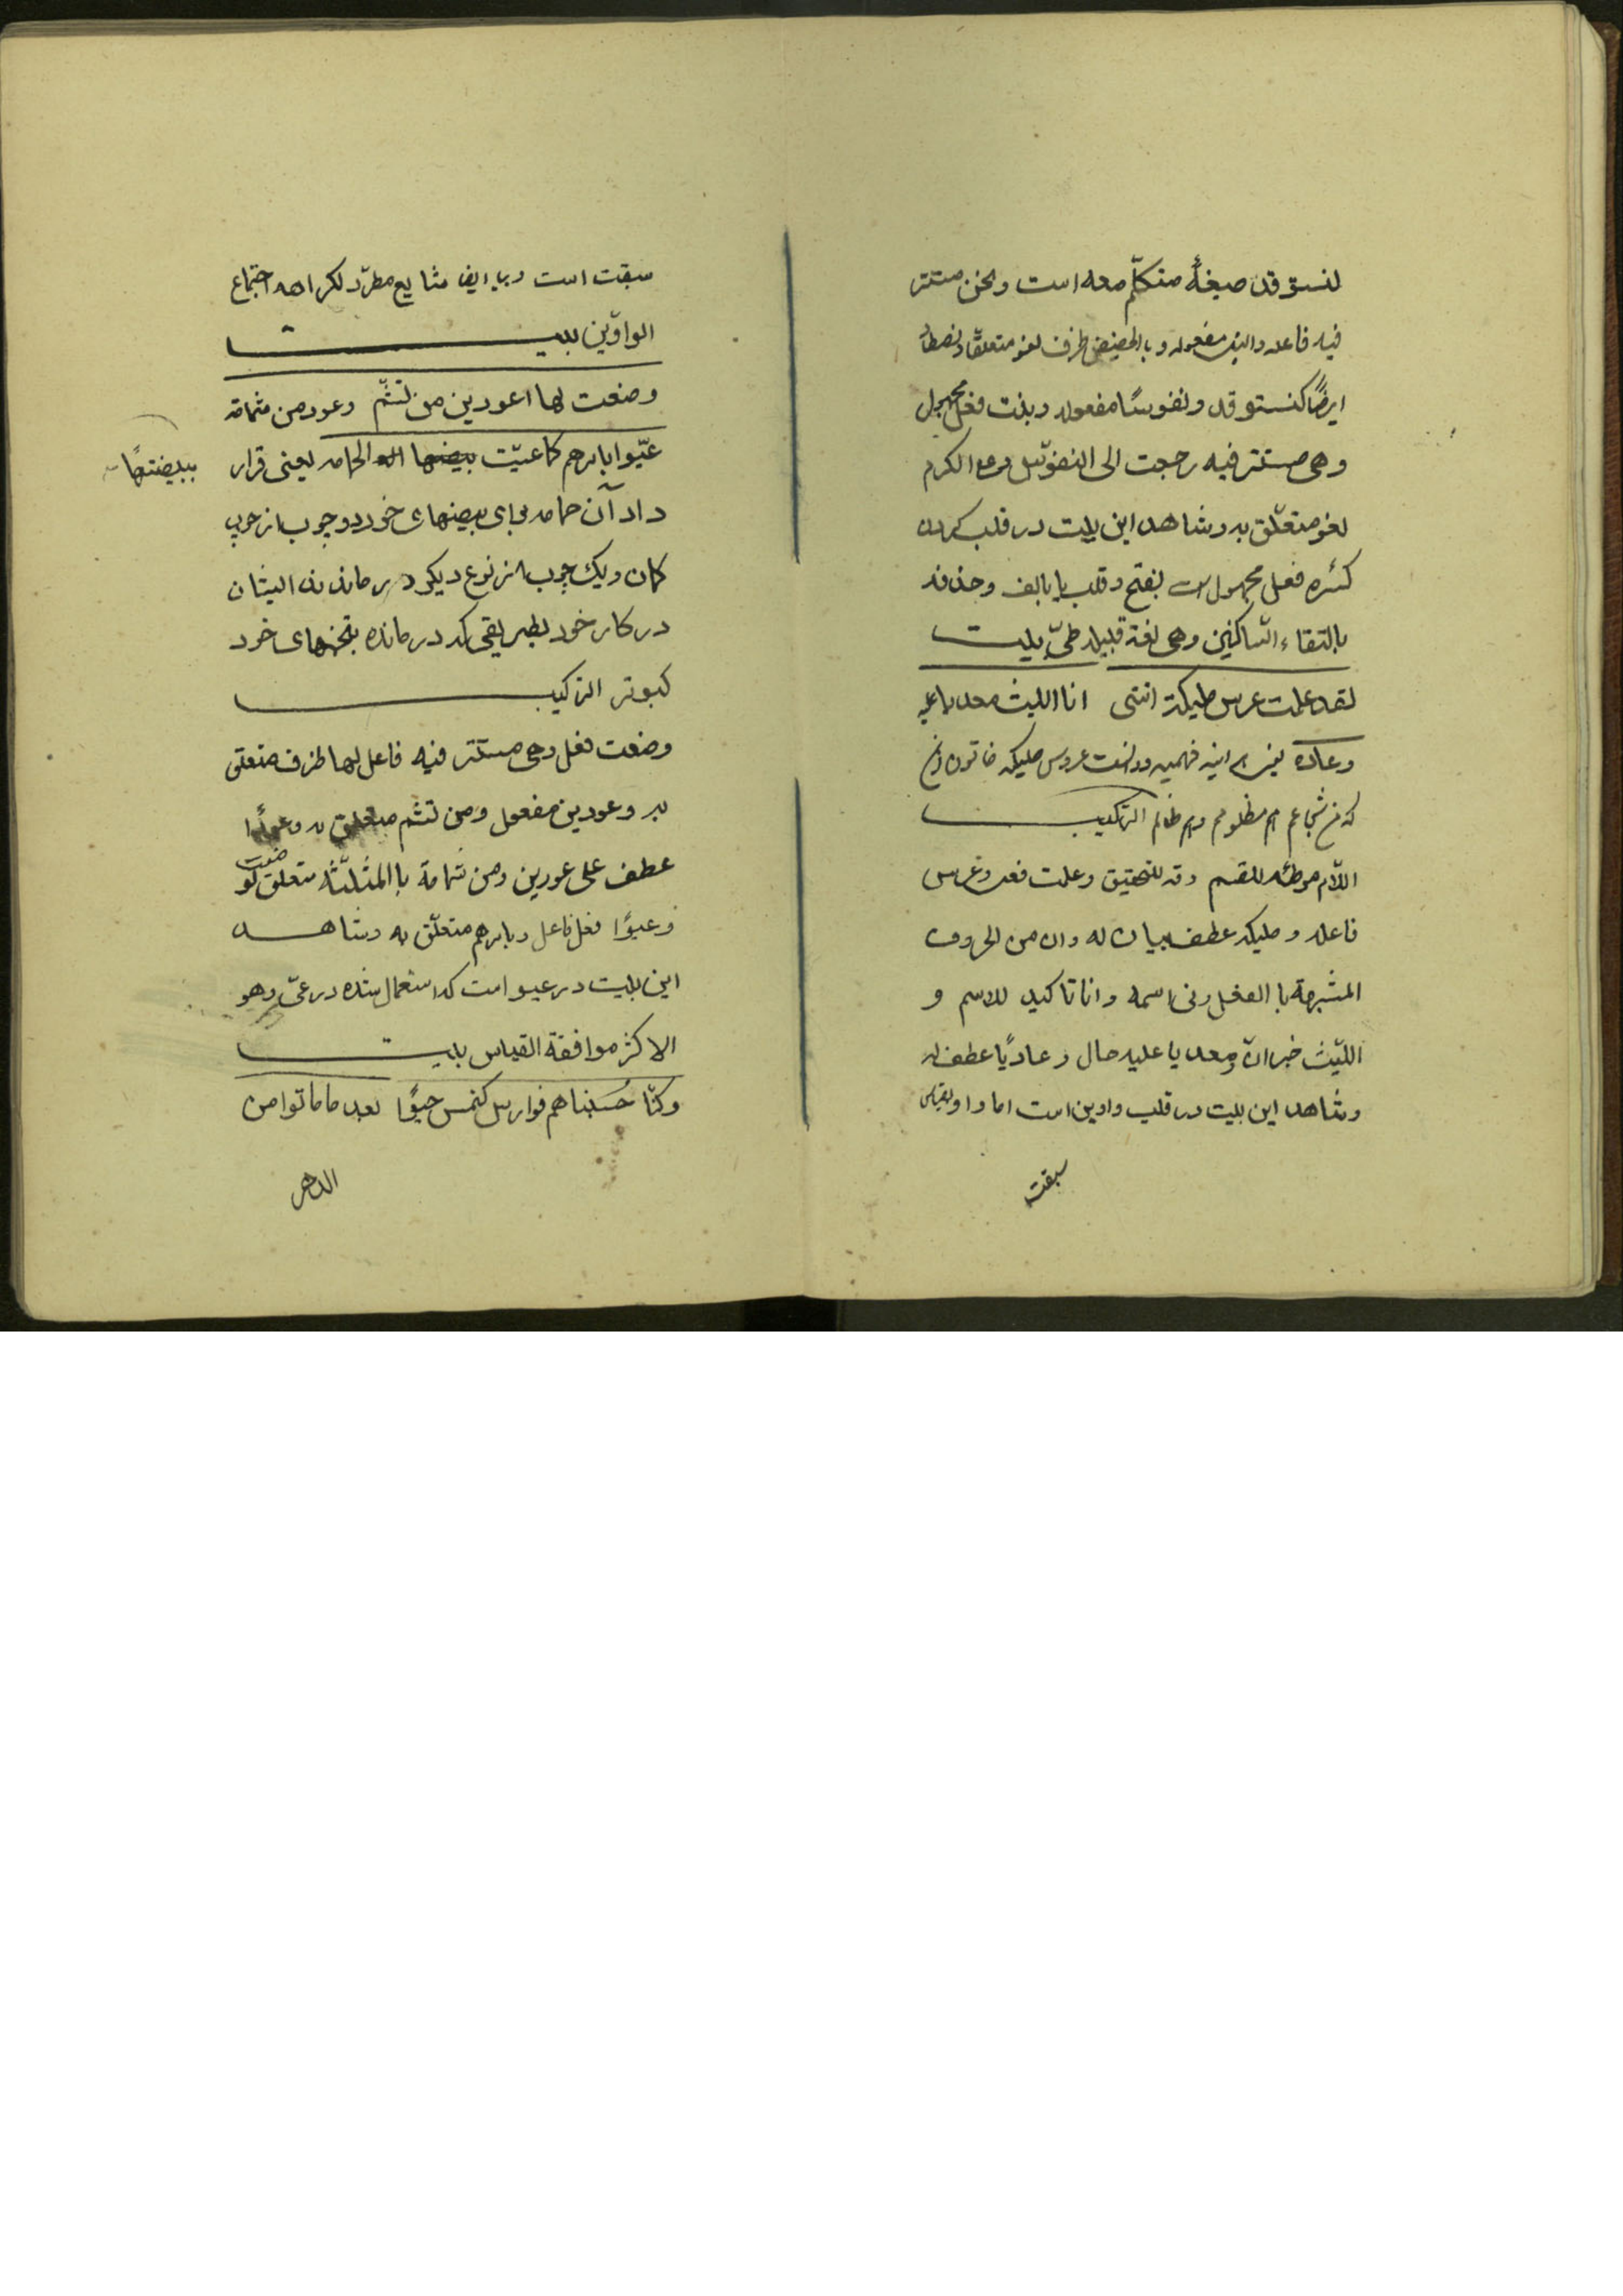 لنستوقد صیغهٔ متکلّم معه است ونحن مستتر
فیه فاعله والنبل مفعوله وبالحضیض ظرف لغو متعلقا ونصطاد
ایضًا کنستوقد ونفوسًا مفعوله وبنت فعل مجهول
وهی مستتر فیه رجعت الی النفوس وعلی الکرم
لغو متعلّق به وشاهد این بیت در قلب کردن
کسره فعل مجهول است بفتح وقلب یا بالف وحذف
بالتقاء السّاکنین وهی لغة قبیله طیّ بیت
لقد علمت عرس ملیکة اننی انا اللیث معدیا علیه
وعادیا یعنی فهمیده ودانست عروس ملیکه خاتون
که من شجاعم هم مظلومم وهم ظالم الترکیب
اللّام موطئه للقسم وقد للتحقیق وعلمت فعل وعرس
فاعله وملیکه عطف بیان له وان من الحروف
المشبهة بالفعل ونی اسمه وانا تاکید للاسم و
اللیث خبر انّ ومعدیا علیه حال وعادیًا عطف له
وشاهد این بیت در قلب واوین است اما واو بقیاس
سبقت
سبقت است ویا ایضا شایع مطرّد لکراهه اجتماع
الواوین بیت
وضعت لها اعودین من نشم وعود من ثمامة
عیّوا بامرهم کما عیّت بیضها الحمامه یعنی قرار
ببیضتها
داد آن حمامه بجای بیضهای خود دو چوب از چوب
کمان ویک چوب از نوع دیکر درماندند ایشان
در کار خود بطریقی که درمانده بتخمهای خود
کبوتر الترکیب
وضعت فعل وهی مستتر فیه فاعل لها ظرف متعلق
به وعودین مفعول ومن نشم متعلق به وعودًا
عطف علی عودین ومن ثمامة بالمثلّثه متعلق لو
ضعت
وعیوّا فعل فاعل وبامرهم متعلّق به وشاهد
این بیت در عیوا است که استعمال شده در عیّ وهو
الاکثر موافقة القیاس بیت
وکنّا حسبناهم فوارس کهمس حیوًا بعد ما ماتوا من
الدهر